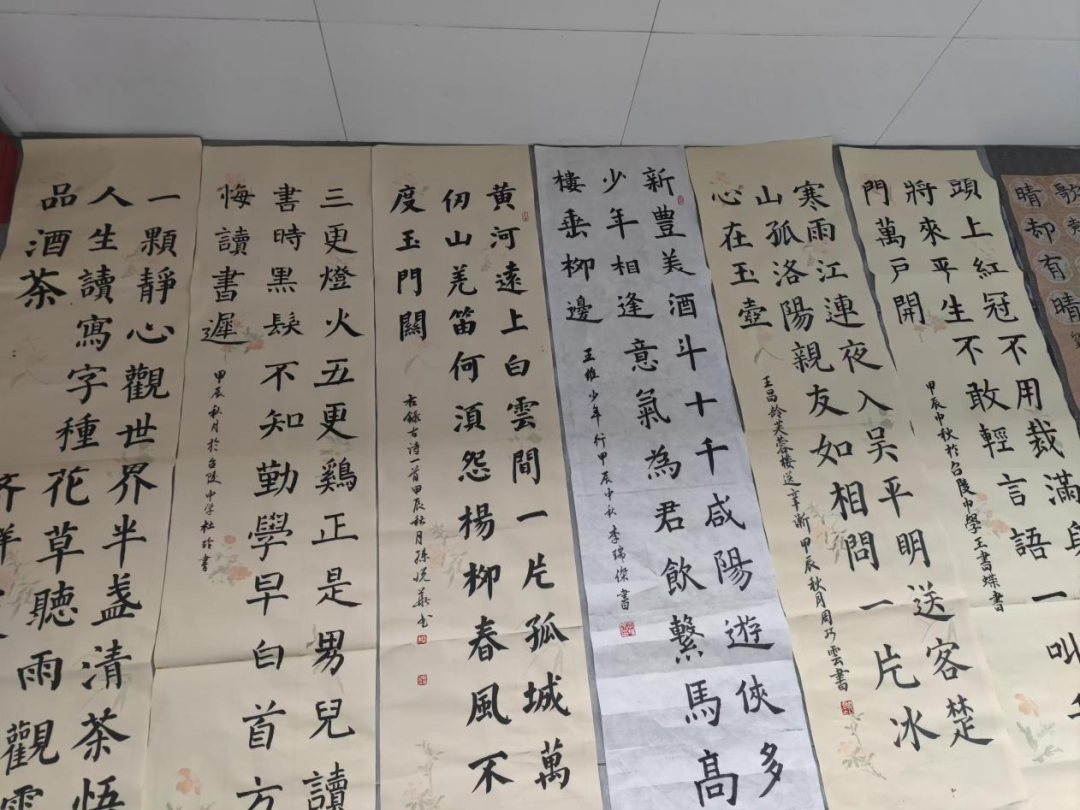 晴却有晴
頭上紅冠不用裁滿身
將來平生不敢輕言語一叫
門萬戶開
甲辰中秋於召陵中學王書蝶書
寒雨江連夜入吴平明送客楚
山孤洛陽親友如相問一片冰
心在玉壺
王昌龄芙蓉楼送辛漸甲辰秋月周巧雲書
新豐美酒斗十千咸陽遊俠多
少年相逢意氣為君飲繫馬高
樓垂柳邊
王維少年行甲辰中秋李瑞傑書
黄河遠上白雲間一片孤城萬
仞山羌笛何湏怨楊柳春風不
度玉門關
古詩一首甲辰秋月孫悦華书
三更燈火五更鷄正是男兒讀
書時黑髮不知勤學早白首方
悔讀書遲
甲辰秋月於召陵中學杜玲書
一顆靜心觀世界半盞清茶悟
人生讀寫字種花草聽雨觀雲
品酒茶